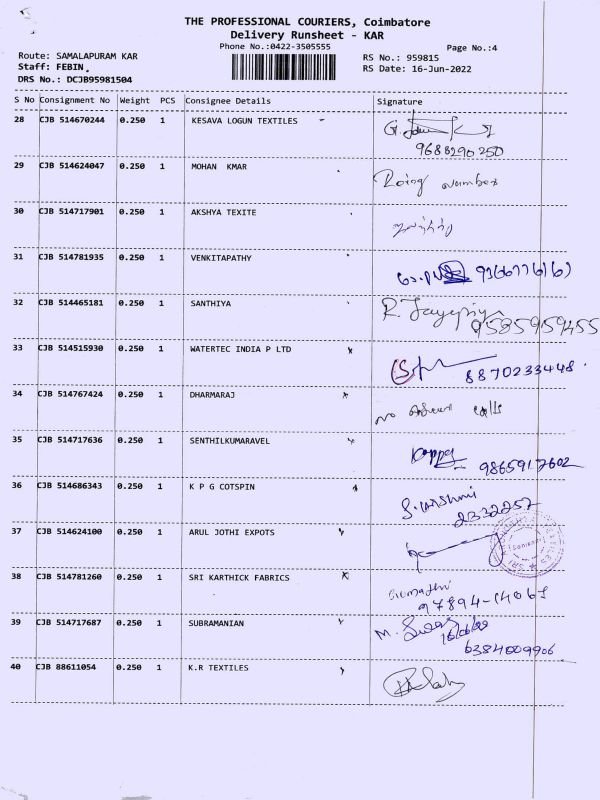 THE PROFESSIONAL COURIERS, Coimbatore
Delivery Runsheet - KAR
Phone No.:0422-3505555
Page No.:4
Route: SAMALAPURAM KAR
RS No.: 959815
Staff: FEBIN.
RS Date: 16-Jun-2022
DRS No.: DCJB95981504
S No Consignment No Weight PCS Consignee Details Signature
28 CJB 514670244 0.250 1 KESAVA LOGUN TEXTILES
9688290250
29 CJB 514624047 0.250 1 MOHAN KMAR
number
30 CJB 514717901 0.250 1 AKSHYA TEXITE
31 CJB 514781935 0.250 1 VENKITAPATHY
32 CJB 514465181 0.250 1 SANTHIYA
R. Jayapriya
9585959455
33 CJB 514515930 0.250 1 WATERTEC INDIA P LTD
8870233448
34 CJB 514767424 0.250 1 DHARMARAJ
no calls
35 CJB 514717636 0.250 1 SENTHILKUMARAVEL
9865917602
36 CJB 514686343 0.250 1 K P G COTSPIN
2332257
37 CJB 514624100 0.250 1 ARUL JOTHI EXPOTS
38 CJB 514781260 0.250 1 SRI KARTHICK FABRICS
97894-14061
39 CJB 514717687 0.250 1 SUBRAMANIAN
6384009906
40 CJB 88611054 0.250 1 K.R TEXTILES